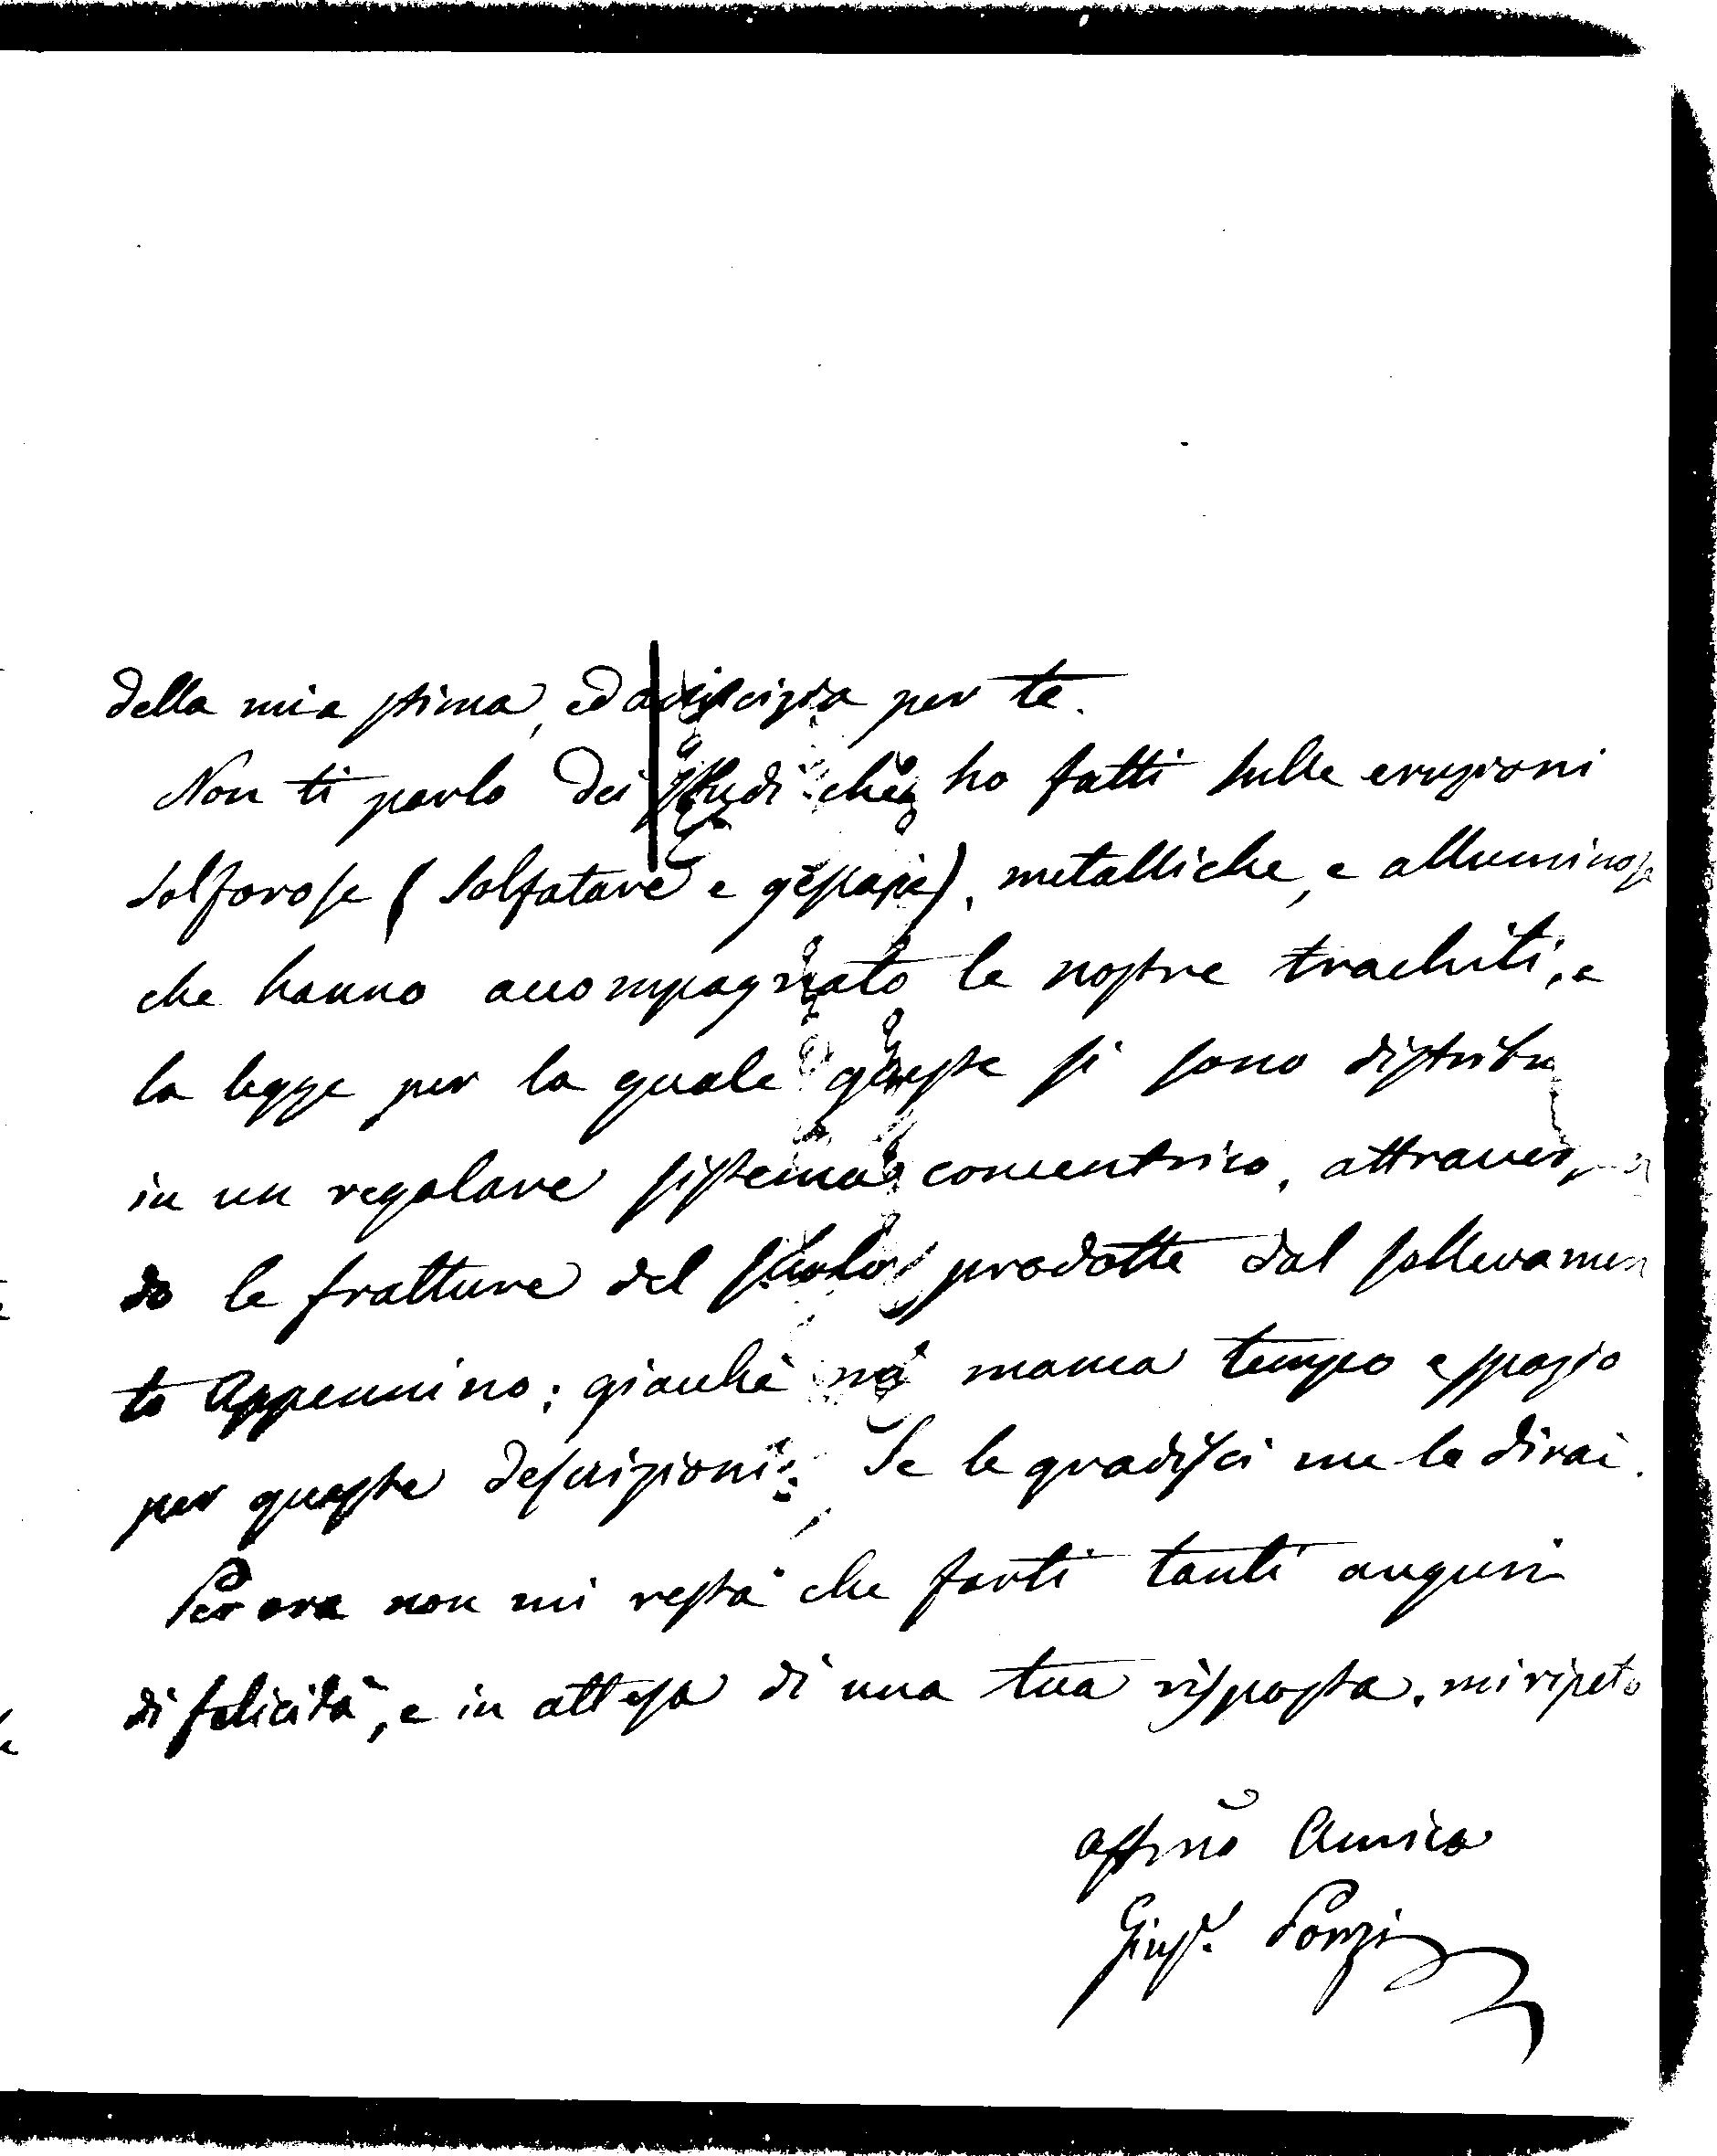 della mia stima, ed amicizia per te.
Non ti parlo dei studi che ho fatti sulle eruzioni
solforose (solfatare e gessaje), metalliche, e alluminose
che hanno accompagnato le nostre trachiti, e
la legge per la quale queste si sono distribu
in un regolare sistema concentrico, attraversan
do le fratture del suolo prodotte dal sollevamen
to Appennino; giacchè mi manca tempo e spazio
per queste descrizioni. Se le gradisci me lo dirai.
Per ora non mi resta che farti tanti auguri
di felicità, e in attesa di una tua risposta, mi ripeto
affmo Amico
Giusе. Ponzi